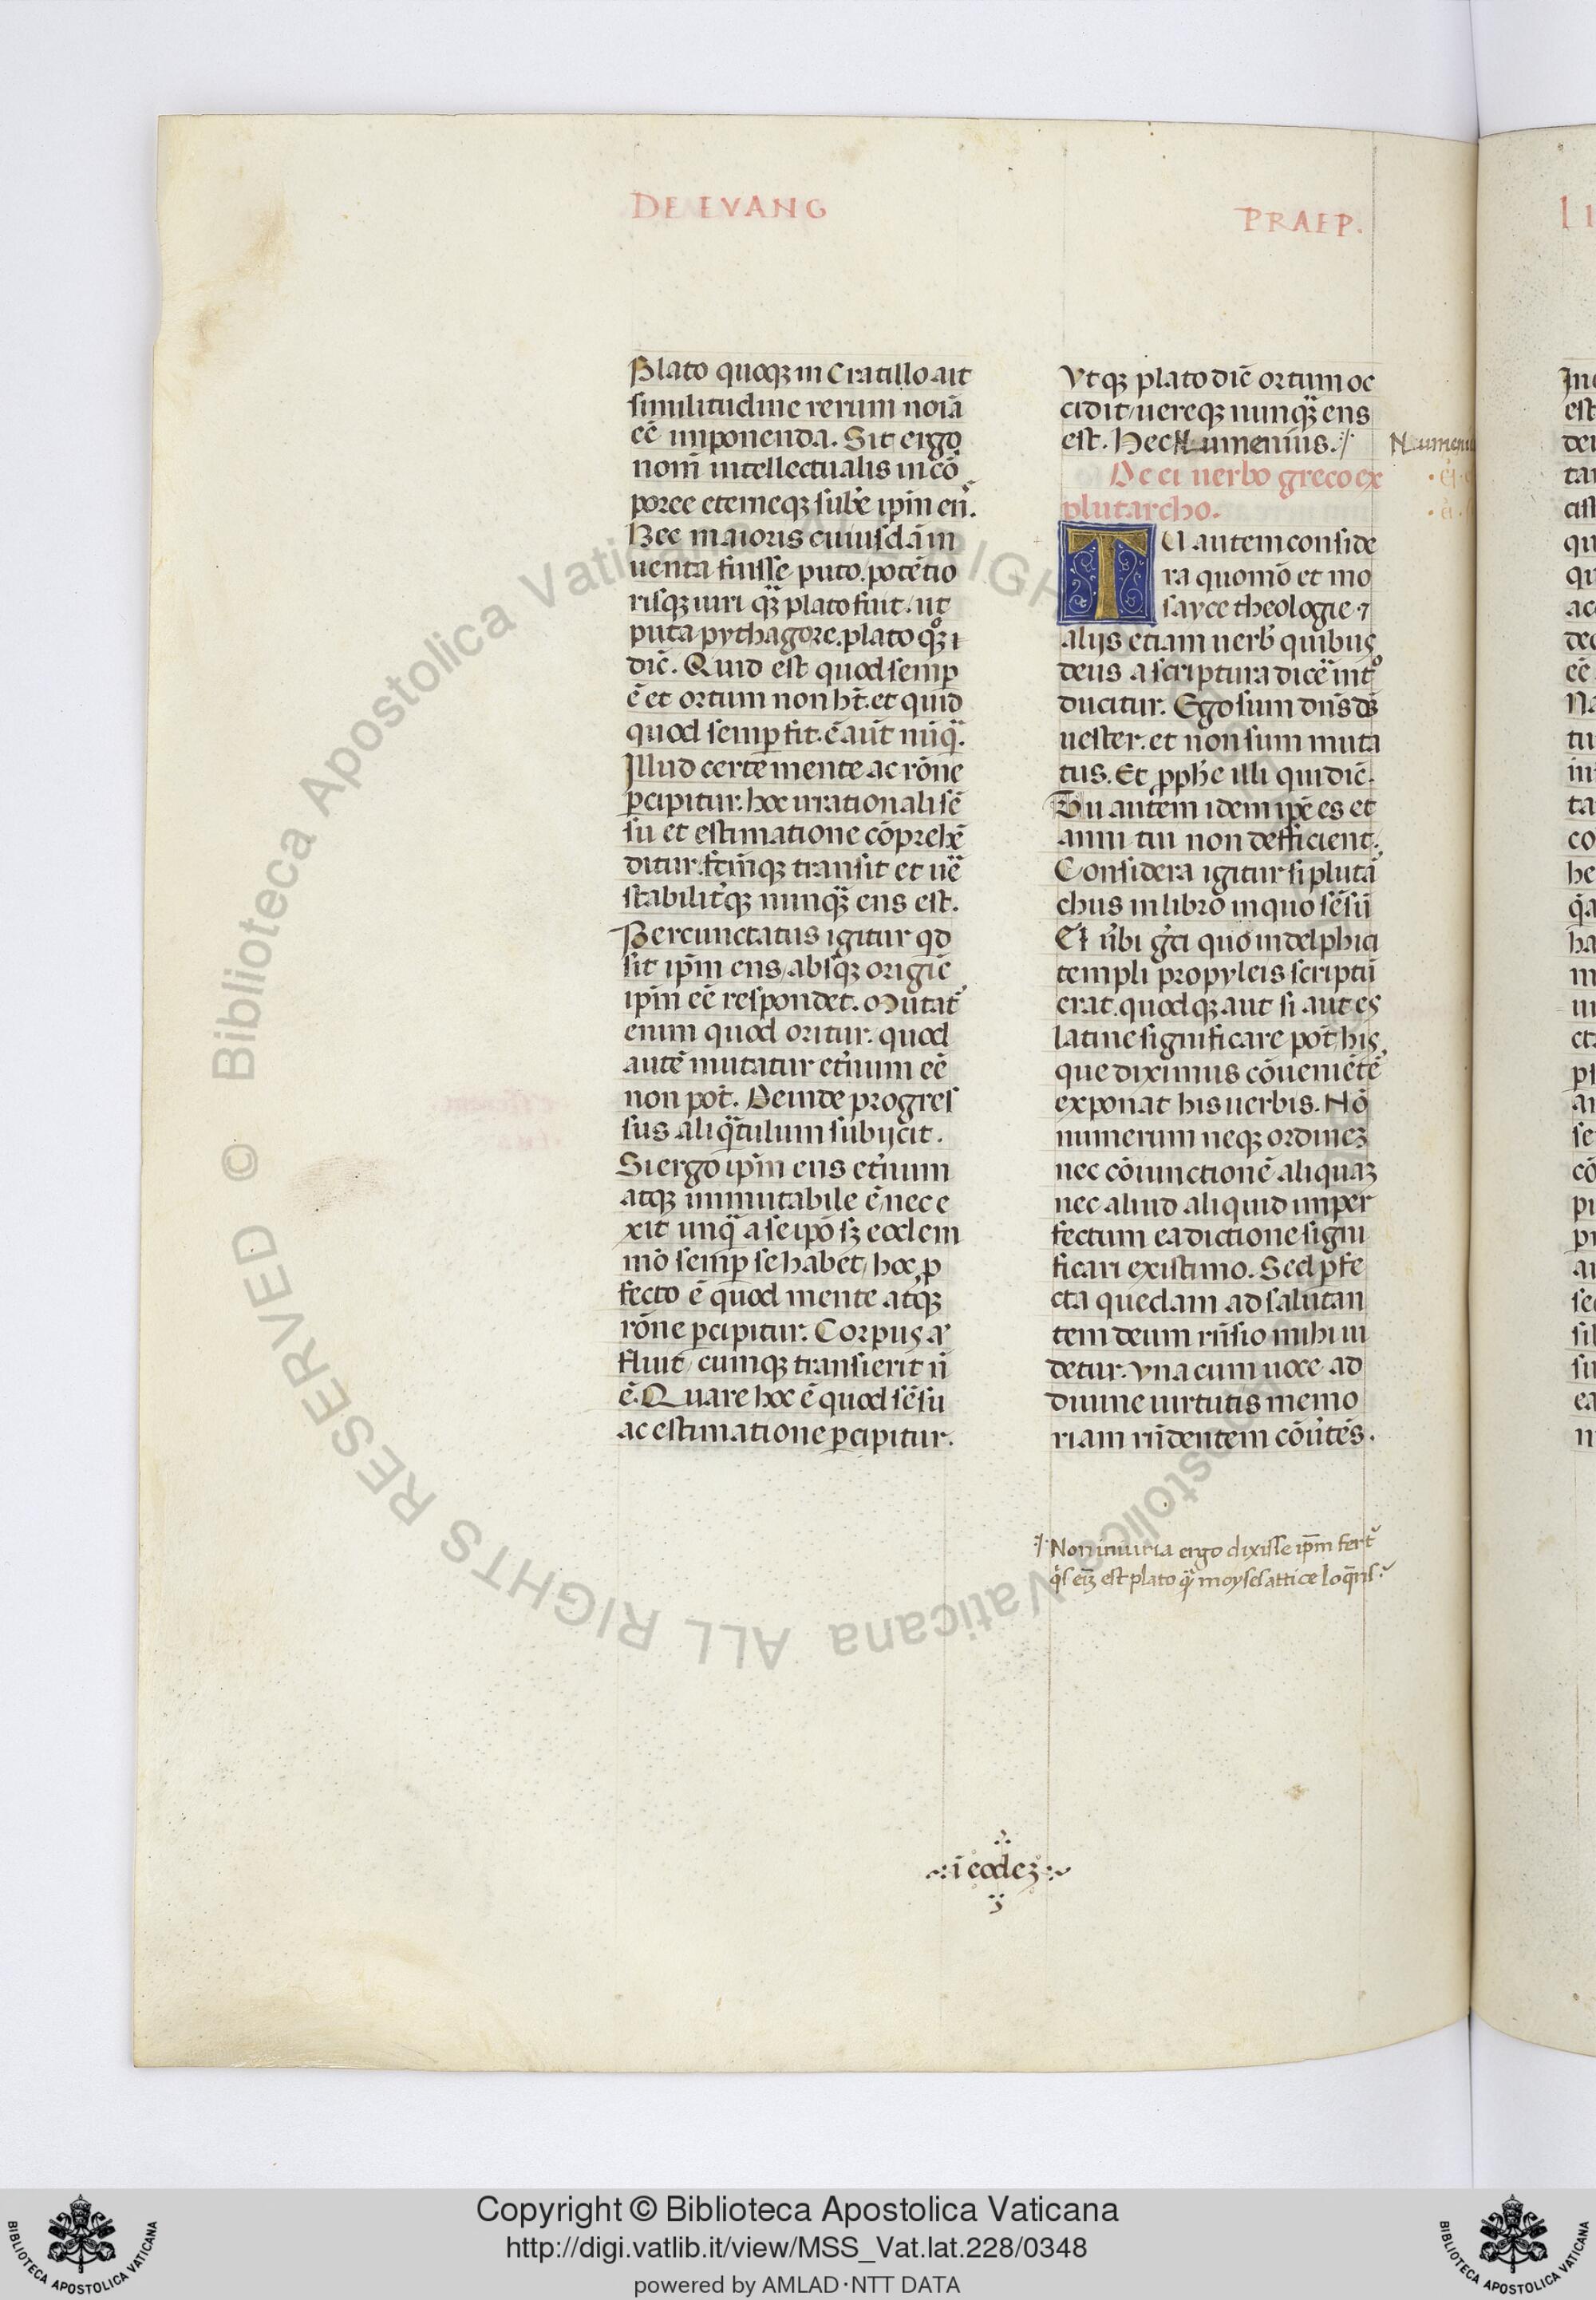 DE EVANG
PRAEP.
Plato quoqꝫ in Cratillo ait
similitudine rerum noīā
eē imponenda. Sit ergo
nom̄ intellectualis incō
poree eterneqꝫ sub̄e ip̄m en̄.
Hec maioris cuiusdā in
uenta fuisse puto. potētio
risqꝫ uiri qꝫ̄ plato fuit. ut
puta pythagore. plato qꝫ̊ ı
dic̄. Quid est quod semꝑ
ē et ortum non h̄t. et quid
quod semꝑ fit. ē aūt nūq̄.
Illud certe mente ac rōne
ꝑcipitur. hoc irrationali sē
su et estimatione cōprehē
ditur. fit̄inqꝫ transit et uē
stabilit̓qꝫ nunqꝫ̄ ens est.
Percunctatus igitur qd
sit ip̄m ens, absqꝫ origiē
ip̄m eē respondet. Mutat̓
enim quod oritur. quod
autē mutatur et̓num eē
non pōt. Deinde progres
sus aliq̄tulum subijcit.
Si ergo ip̄m ens et̓num
atqꝫ immutabile ē, nec e
xit unq̄ a seip̄o sꝫ eodem
mō semꝑ se habet, hoc ꝓ
fecto ē quod mente atqꝫ
rōne ꝑcipitur. Corpus a᷑
fluit, cumqꝫ transierit n̄
ē. Quare hoc ē quod sēsu
ac estimatione ꝑcipitur.
Vtqꝫ plato dic̄ ortum oc
cidit, uereqꝫ nunqꝫ̄ ens
est. Hec Numenius.⁒
Numeniu
De ei uerbo greco ex
plutarcho.
TU autem conside
ra quomō et mo
sayce theologie ⁊
alijs etiam uerb̓ quibus
deus a scriptura dicēs int̊
ducitur. Ego sum dn̄s ds̄
uester. et non sum muta
tus. Et ꝓph̄e illi qui dic̄.
Tu autem idem ip̄e es et
anni tui non defficient.
Considera igitur si plutā
chus in libro in quo sēsū
EI ūbi ḡci quo in delphici
templi propyleis scriptū
erat. quodqꝫ aut si aut es
latine significare pōt, his
que diximus cōueniētē
exponat his uerbis. Nō
numerum neqꝫ ordineꝫ
nec cōiunctionē aliquaꝫ
nec aliud aliquid imper
fectum ea dictione signi
ficari existimo. Sed ꝑfe
cta quedam ad salutan
tem deum rn̄sio mihi ui
detur. vna cum uoce ad
diuine uirtutis memo
riam rn̄dentem cōūtēs.
⁒ Non iniuria ergo dixisse ip̄m fert᷑
q̓s eiꝫ est plato q̄ moyses attice loquēs.
i eodeꝫ
Copyright © Biblioteca Apostolica Vaticana
http://digi.vatlib.it/view/MSS_Vat.lat.228/0348
powered by AMLAD·NTT DATA
BIBLIOTECA APOSTOLICA VATICANA
BIBLIOTECA APOSTOLICA VATICANA
© Biblioteca Apostolica Vaticana ALL RIGHTS RESERVED